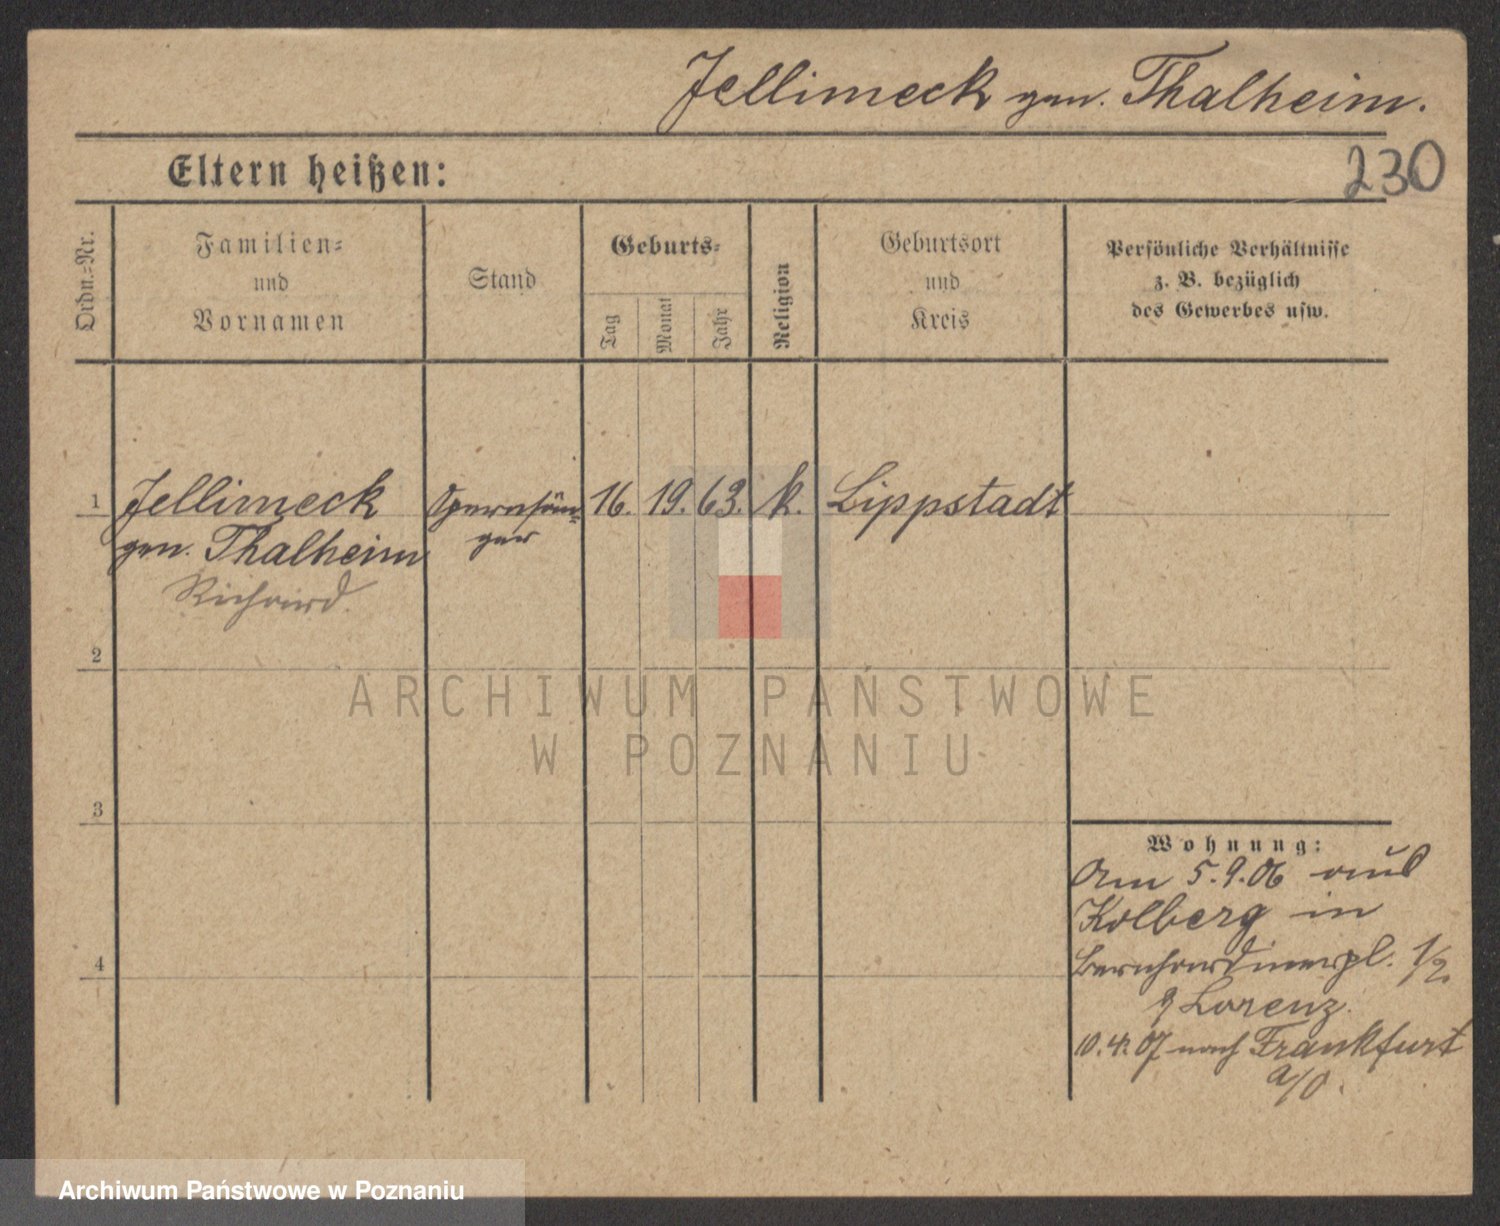 Jellimeck gen. Thalheim.
230
Eltern heißen:
Ordn.=Nr.
Familien=
und
Vornamen
Stand
Geburts=
Tag
Monat
Jahr
Religion
Geburtsort
und
Kreis
Persönliche Verhältnisse
z. B. bezüglich
des Gewerbes usw.
1 Jellimeck Opernsän= 16. 19. 63. k. Lippstadt
gen. Thalheim ger
Richard.
2
3
4
Wohnung:
Am 5.9.06 aus
Kolberg in
Bernhardinerpl. 1/2
Lorenz.
10.4.07 nach Frankfurt
a/O.
ARCHIWUM PAŃSTWOWE
W POZNANIU
Archiwum Państwowe w Poznaniu